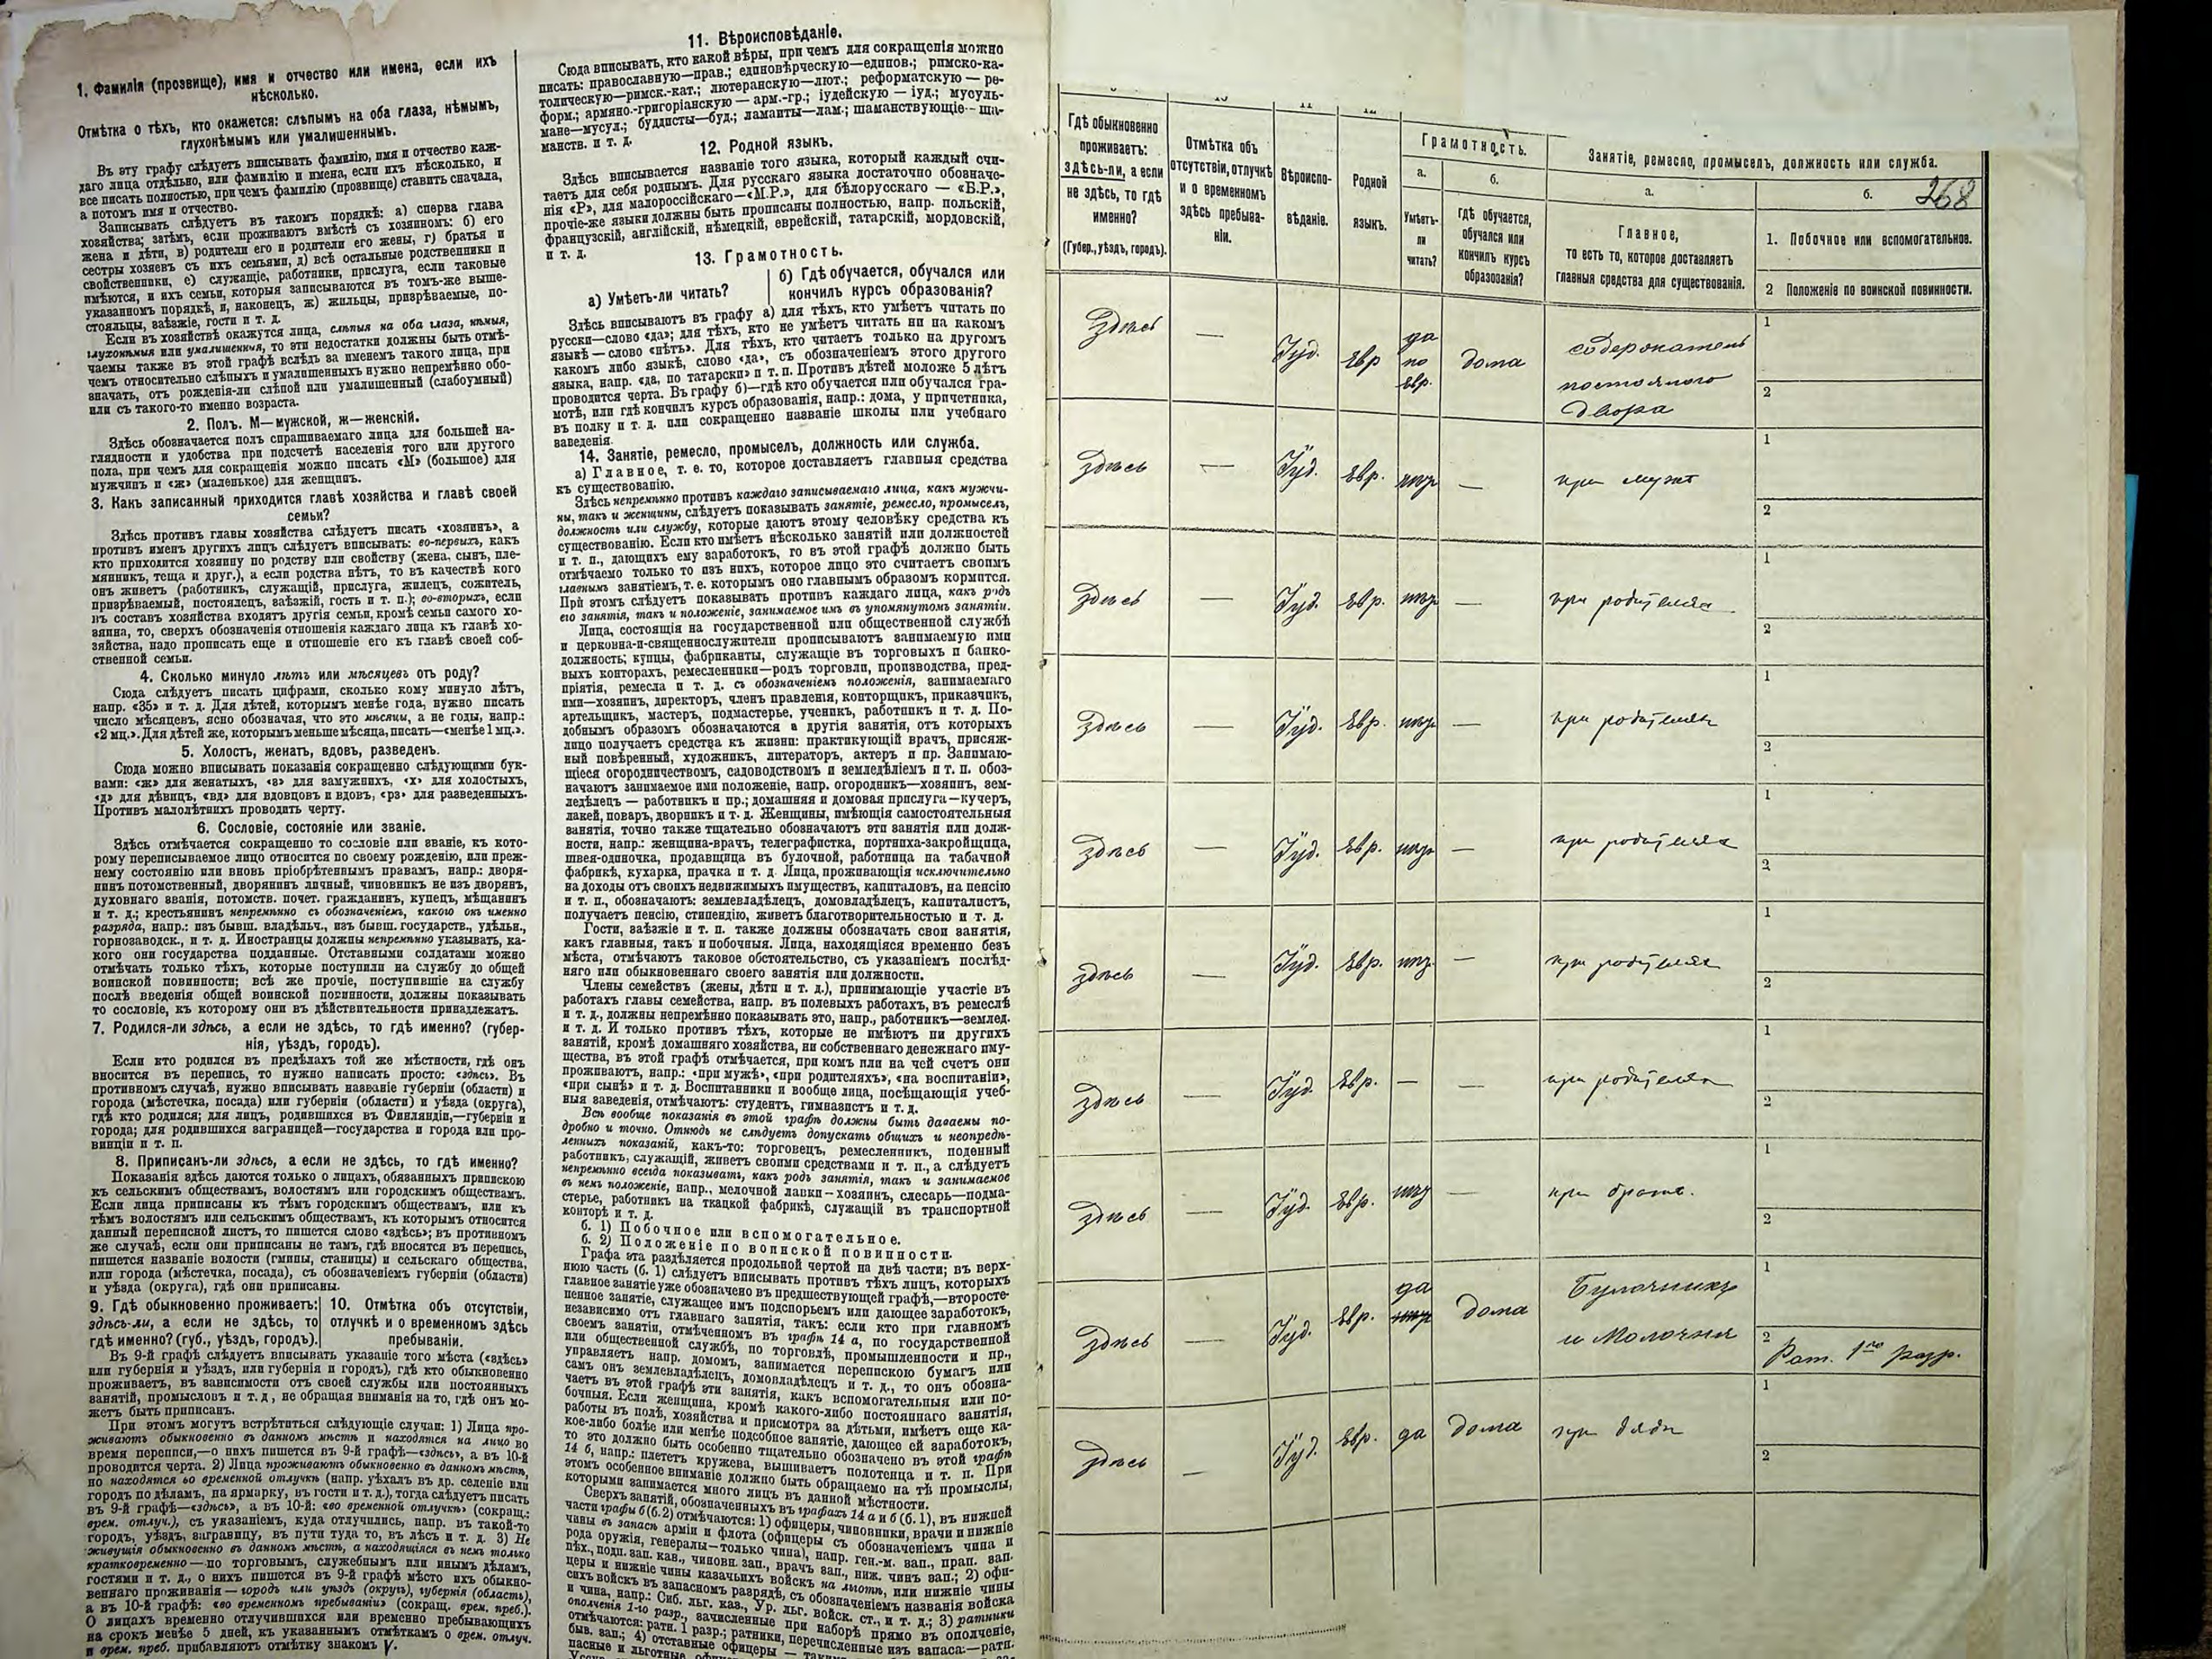 1. Фамилія (прозвище), имя и отчество или имена, если ихъ
нѣсколько.
Отмѣтка о тѣхъ, кто окажется: слѣпымъ на оба глаза, нѣмымъ,
глухонѣмымъ или умалишеннымъ.
Въ эту графу слѣдуетъ вписывать фамилію, имя и отчество каж-
даго лица отдѣльно, или фамилію и имена, если ихъ нѣсколько, и
все писать полностью, при чемъ фамилію (прозвище) ставить сначала,
а потомъ имя и отчество.
Записывать слѣдуетъ въ такомъ порядкѣ: а) сперва глава
хозяйства; затѣмъ, если проживаютъ вмѣстѣ съ хозяиномъ: б) его
жена и дѣти, в) родители его и родители его жены, г) братья и
сестры хозяевъ съ ихъ семьями, д) всѣ остальные родственники и
свойственники, е) служащіе, работники, прислуга, если таковые
имѣются, и ихъ семьи, которыя записываются въ томъ-же выше-
указанномъ порядкѣ, и, наконецъ, ж) жильцы, призрѣваемые, по-
стояльцы, заѣзжіе, гости и т. д.
Если въ хозяйствѣ окажутся лица, слѣпыя на оба глаза, нѣмыя,
глухонѣмыя или умалишенныя, то эти недостатки должны быть отмѣ-
чаемы также въ этой графѣ вслѣдъ за именемъ такого лица, при
чемъ относительно слѣпыхъ и умалишенныхъ нужно непремѣнно обо-
значать, отъ рожденія-ли слѣпой или умалишенный (слабоумный)
или съ такого-то именно возраста.
2. Полъ. М—мужской, ж—женскій.
Здѣсь обозначается полъ спрашиваемаго лица для большей на-
глядности и удобства при подсчетѣ населенія того или другого
пола, при чемъ для сокращенія можно писать «М» (большое) для
мужчинъ и «ж» (маленькое) для женщинъ.
3. Какъ записанный приходится главѣ хозяйства и главѣ своей
семьи?
Здѣсь противъ главы хозяйства слѣдуетъ писать «хозяинъ», а
противъ именъ другихъ лицъ слѣдуетъ вписывать: во-первыхъ, какъ
кто приходится хозяину по родству или свойству (жена, сынъ, пле-
мянникъ, теща и друг.), а если родства нѣтъ, то въ качествѣ кого
онъ живетъ (работникъ, служащій, прислуга, жилецъ, сожитель,
призрѣваемый, постоялецъ, заѣзжій, гость и т. п.); во-вторыхъ, если
въ составъ хозяйства входятъ другія семьи, кромѣ семьи самого хо-
зяина, то, сверхъ обозначенія отношенія каждаго лица къ главѣ хо-
зяйства, надо прописать еще и отношеніе его къ главѣ своей соб-
ственной семьи.
4. Сколько минуло лѣтъ или мѣсяцевъ отъ роду?
Сюда слѣдуетъ писать цифрами, сколько кому минуло лѣтъ,
напр. «35» и т. д. Для дѣтей, которымъ менѣе года, нужно писать
число мѣсяцевъ, ясно обозначая, что это мѣсяцы, а не годы, напр.:
«2 мц.». Для дѣтей же, которымъ меньше мѣсяца, писать—«менѣе 1 мц.».
5. Холостъ, женатъ, вдовъ, разведенъ.
Сюда можно вписывать показанія сокращенно слѣдующими бук-
вами: «ж» для женатыхъ, «з» для замужнихъ, «х» для холостыхъ,
«д» для дѣвицъ, «вд» для вдовцовъ и вдовъ, «рз» для разведенныхъ.
Противъ малолѣтнихъ проводить черту.
6. Сословіе, состояніе или званіе.
Здѣсь отмѣчается сокращенно то сословіе или званіе, къ кото-
рому переписываемое лицо относится по своему рожденію, или преж-
нему состоянію или вновь пріобрѣтеннымъ правамъ, напр.: дворя-
нинъ потомственный, дворянинъ личный, чиновникъ не изъ дворянъ,
духовнаго званія, потомств. почет. гражданинъ, купецъ, мѣщанинъ
и т. д.; крестьянинъ непремѣнно съ обозначеніемъ, какого онъ именно
разряда, напр.: изъ бывш. владѣльч., изъ бывш. государств., удѣльн.,
горнозаводск., и т. д. Иностранцы должны непремѣнно указывать, ка-
кого они государства подданные. Отставными солдатами можно
отмѣчать только тѣхъ, которые поступили на службу до общей
воинской повинности; всѣ же прочіе, поступившіе на службу
послѣ введенія общей воинской повинности, должны показывать
то сословіе, къ которому они въ дѣйствительности принадлежатъ.
7. Родился-ли здѣсь, а если не здѣсь, то гдѣ именно? (губер-
нія, уѣздъ, городъ).
Если кто родился въ предѣлахъ той же мѣстности, гдѣ онъ
вносится въ перепись, то нужно написать просто: «здѣсь». Въ
противномъ случаѣ, нужно вписывать названіе губерніи (области) и
города (мѣстечка, посада) или губерніи (области) и уѣзда (округа),
гдѣ кто родился; для лицъ, родившихся въ Финляндіи,—губерніи и
города; для родившихся заграницей—государства и города или про-
винціи и т. п.
8. Приписанъ-ли здѣсь, а если не здѣсь, то гдѣ именно?
Показанія здѣсь даются только о лицахъ, обязанныхъ припискою
къ сельскимъ обществамъ, волостямъ или городскимъ обществамъ.
Если лица приписаны къ тѣмъ городскимъ обществамъ, или къ
тѣмъ волостямъ или сельскимъ обществамъ, къ которымъ относится
данный переписной листъ, то пишется слово «здѣсь»; въ противномъ
же случаѣ, если они приписаны не тамъ, гдѣ вносятся въ перепись,
пишется названіе волости (гмины, станицы) и сельскаго общества,
или города (мѣстечка, посада), съ обозначеніемъ губерніи (области)
и уѣзда (округа), гдѣ они приписаны.
9. Гдѣ обыкновенно проживаетъ:
здѣсь-ли, а если не здѣсь, то
гдѣ именно? (губ., уѣздъ, городъ).
10. Отмѣтка объ отсутствіи,
отлучкѣ и о временномъ здѣсь
пребываніи.
Въ 9-й графѣ слѣдуетъ вписывать указаніе того мѣста («здѣсь»
или губернія и уѣздъ, или губернія и городъ), гдѣ кто обыкновенно
проживаетъ, въ зависимости отъ своей службы или постоянныхъ
занятій, промысловъ и т. д, не обращая вниманія на то, гдѣ онъ мо-
жетъ быть приписанъ.
При этомъ могутъ встрѣтиться слѣдующіе случаи: 1) Лица про-
живаютъ обыкновенно въ данномъ мѣстѣ и находятся на лицо во
время переписи,—о нихъ пишется въ 9-й графѣ—«здѣсь», а въ 10-й
проводится черта. 2) Лица проживаютъ обыкновенно въ данномъ мѣстѣ,
но находятся во временной отлучкѣ (напр. уѣхалъ въ др. селеніе или
городъ по дѣламъ, на ярмарку, въ гости и т. д.), тогда слѣдуетъ писать
въ 9-й графѣ—«здѣсь», а въ 10-й: «во временной отлучкѣ» (сокращ.:
врем. отлуч.), съ указаніемъ, куда отлучились, напр. въ такой-то
городъ, уѣздъ, заграницу, въ пути туда то, въ лѣсъ и т. д. 3) Не
живущія обыкновенно въ данномъ мѣстѣ, а находящіяся въ немъ только
кратковременно—по торговымъ, служебнымъ или инымъ дѣламъ,
гостями и т. д., о нихъ пишется въ 9-й графѣ мѣсто ихъ обыкно-
веннаго проживанія—городъ или уѣздъ (округъ), губернія (область),
а въ 10-й графѣ: «во временномъ пребываніи» (сокращ. врем. преб.).
О лицахъ временно отлучившихся или временно пребывающихъ
на срокъ менѣе 5 дней, къ указаннымъ отмѣткамъ о врем. отлуч.
и врем. преб. прибавляютъ отмѣтку знакомъ V.
11. Вѣроисповѣданіе.
Сюда вписывать, кто какой вѣры, при чемъ для сокращенія можно
писать: православную—прав.; единовѣрческую—единов.; римско-ка-
толическую—римск.-кат.; лютеранскую—лют.; реформатскую—ре-
форм.; армяно.-григоріанскую—арм.-гр.; іудейскую—іуд.; мусуль-
мане—мусул.; буддисты—буд.; ламаиты—лам.; шаманствующіе—ша-
манств. и т. д.
12. Родной языкъ.
Здѣсь вписывается названіе того языка, который каждый счи-
таетъ для себя роднымъ. Для русскаго языка достаточно обозначе-
нія «Р», для малороссійскаго—«М.Р.», для бѣлорусскаго — «Б.Р.»,
прочіе-же языки должны быть прописаны полностью, напр. польскій,
французскій, англійскій, нѣмецкій, еврейскій, татарскій, мордовскій,
и т. д.
13. Грамотность.
а) Умѣетъ-ли читать?
б) Гдѣ обучается, обучался или
кончилъ курсъ образованія?
Здѣсь вписываютъ въ графу а) для тѣхъ, кто умѣетъ читать по
русски—слово «да»; для тѣхъ, кто не умѣетъ читать ни на какомъ
языкѣ—слово «нѣтъ». Для тѣхъ, кто читаетъ только на другомъ
какомъ либо языкѣ, слово «да», съ обозначеніемъ этого другого
языка, напр. «да, по татарски» и т. п. Противъ дѣтей моложе 5 лѣтъ
проводится черта. Въ графу б)—гдѣ кто обучается или обучался гра-
мотѣ, или гдѣ кончилъ курсъ образованія, напр.: дома, у причетника,
въ полку и т. д. или сокращенно названіе школы или учебнаго
заведенія.
14. Занятіе, ремесло, промыселъ, должность или служба.
а) Главное, т. е. то, которое доставляетъ главныя средства
къ существованію.
Здѣсь непремѣнно противъ каждаго записываемаго лица, какъ мужчи-
ны, такъ и женщины, слѣдуетъ показывать занятіе, ремесло, промыселъ,
должность или службу, которые даютъ этому человѣку средства къ
существованію. Если кто имѣетъ нѣсколько занятій или должностей
и т. п., дающихъ ему заработокъ, то въ этой графѣ должно быть
отмѣчаемо только то изъ нихъ, которое лицо это считаетъ своимъ
главнымъ занятіемъ, т. е. которымъ оно главнымъ образомъ кормится.
При этомъ слѣдуетъ показывать противъ каждаго лица, какъ родъ
его занятія, такъ и положеніе, занимаемое имъ въ упомянутомъ занятіи.
Лица, состоящія на государственной или общественной службѣ
и церковна-и-священнослужители прописываютъ занимаемую ими
должность; купцы, фабриканты, служащіе въ торговыхъ и банко-
выхъ конторахъ, ремесленники—родъ торговли, производства, пред-
пріятія, ремесла и т. д. съ обозначеніемъ положенія, занимаемаго
ими—хозяинъ, директоръ, членъ правленія, конторщикъ, приказчикъ,
артельщикъ, мастеръ, подмастерье, ученикъ, работникъ и т. д. По-
добнымъ образомъ обозначаются и другія занятія, отъ которыхъ
лицо получаетъ средства къ жизни: практикующій врачъ, присяж-
ный повѣренный, художникъ, литераторъ, актеръ и пр. Занимаю-
щіеся огородничествомъ, садоводствомъ и земледѣліемъ и т. п. обоз-
начаютъ занимаемое ими положеніе, напр. огородникъ—хозяинъ, зем-
ледѣлецъ — работникъ и пр.; домашняя и домовая прислуга—кучеръ,
лакей, поваръ, дворникъ и т. д. Женщины, имѣющія самостоятельныя
занятія, точно также тщательно обозначаютъ эти занятія или долж-
ности, напр.: женщина-врачъ, телеграфистка, портниха-закройщица,
швея-одиночка, продавщица въ булочной, работница на табачной
фабрикѣ, кухарка, прачка и т. д. Лица, проживающія исключительно
на доходы отъ своихъ недвижимыхъ имуществъ, капиталовъ, на пенсію
и т. п., обозначаютъ: землевладѣлецъ, домовладѣлецъ, капиталистъ,
получаетъ пенсію, стипендію, живетъ благотворительностью и т. д.
Гости, заѣзжіе и т. п. также должны обозначать свои занятія,
какъ главныя, такъ и побочныя. Лица, находящіяся временно безъ
мѣста, отмѣчаютъ таковое обстоятельство, съ указаніемъ послѣд-
няго или обыкновеннаго своего занятія или должности.
Члены семействъ (жены, дѣти и т. д.), принимающіе участіе въ
работахъ главы семейства, напр. въ полевыхъ работахъ, въ ремеслѣ
и т. д., должны непремѣнно показывать это, напр., работникъ—землед.
и т. д. И только противъ тѣхъ, которые не имѣютъ ни другихъ
занятій, кромѣ домашняго хозяйства, ни собственнаго денежнаго иму-
щества, въ этой графѣ отмѣчается, при комъ или на чей счетъ они
проживаютъ, напр.: «при мужѣ», «при родителяхъ», «на воспитаніи»,
«при сынѣ» и т. д. Воспитанники и вообще лица, посѣщающія учеб-
ныя заведенія, отмѣчаютъ: студентъ, гимназистъ и т. д.
Всѣ вообще показанія въ этой графѣ должны быть даваемы по-
дробно и точно. Отнюдь не слѣдуетъ допускать общихъ и неопредѣ-
ленныхъ показаній, какъ-то: торговецъ, ремесленникъ, поденный
работникъ, служащій, живетъ своими средствами и т. п., а слѣдуетъ
непремѣнно всегда показывать, какъ родъ занятія, такъ и занимаемое
въ немъ положеніе, напр., мелочной лавки—хозяинъ, слесарь—подма-
стерье, работникъ на ткацкой фабрикѣ, служащій въ транспортной
конторѣ и т. д.
б. 1) Побочное или вспомогательное.
б. 2) Положеніе по воинской повинности.
Графа эта раздѣляется продольной чертой на двѣ части; въ верх-
нюю часть (б. 1) слѣдуетъ вписывать противъ тѣхъ лицъ, которыхъ
главное занятіе уже обозначено въ предшествующей графѣ,—второсте-
пенное занятіе, служащее имъ подспорьемъ или дающее заработокъ,
независимо отъ главнаго занятія, такъ: если кто при главномъ
своемъ занятіи, отмѣченномъ въ графѣ 14 а, по государственной
или общественной службѣ, по торговлѣ, промышленности и пр.,
управляетъ напр. домомъ, занимается перепискою бумагъ или
самъ онъ землевладѣлецъ, домовладѣлецъ и т. д., то онъ обозна-
чаетъ въ этой графѣ эти занятія, какъ вспомогательныя или по-
бочныя. Если женщина, кромѣ какого-либо постояннаго занятія,
работы въ полѣ, хозяйства и присмотра за дѣтьми, имѣетъ еще ка-
кое-либо болѣе или менѣе подсобное занятіе, дающее ей заработокъ,
то это должно быть особенно тщательно обозначено въ этой графѣ
14 б, напр.: плететъ кружева, вышиваетъ полотенца и т. п. При
этомъ особенное вниманіе должно быть обращаемо на тѣ промыслы,
которыми занимается много лицъ въ данной мѣстности.
Сверхъ занятій, обозначенныхъ въ графахъ 14 а и б (б. 1), въ нижней
части графы б (б.2) отмѣчаются: 1) офицеры, чиновники, врачи и нижніе
чины въ запасѣ арміи и флота (офицеры съ обозначеніемъ чина и
рода оружія, генералы—только чина), напр. ген.-м. зап., прап. зап.
пѣх., подп. зап. кав., чиновн. зап., врачъ зап., ниж. чинъ зап.; 2) офи-
церы и нижніе чины казачьихъ войскъ на льготѣ, или нижніе чины
сихъ войскъ въ запасномъ разрядѣ, съ обозначеніемъ названія войска
и чина, напр.: Сиб. льг. каз., Ур. льг. войск. ст., и т. д.; 3) ратники
ополченія 1-го разр., зачисленные при наборѣ прямо въ ополченіе,
отмѣчаются: ратн. 1 разр.; ратники, перечисленные изъ запаса:—ратн.
быв. зап.; 4) отставные офицеры —
пасные и льготные
Гдѣ обыкновенно
проживаетъ:
здѣсь-ли, а если
не здѣсь, то гдѣ
именно?
(Губер., уѣздъ, городъ).
Отмѣтка объ
отсутствіи, отлучкѣ
и о временномъ
здѣсь пребыва-
ніи.
Вѣроиспо-
вѣданіе.
Родной
языкъ.
Грамотность.
а.
Умѣетъ-
ли
читать?
б.
Гдѣ обучается,
обучался или
кончилъ курсъ
образованія?
Занятіе, ремесло, промыселъ, должность или служба.
а.
Главное,
то есть то, которое доставляетъ
главныя средства для существованія.
б.
268
1. Побочное или вспомогательное.
2 Положеніе по воинской повинности.
здѣсь — Іуд. Евр да по Евр. дома содержатель
постоялаго
двора
1
2
здѣсь — Іуд. Евр. нѣтъ — при мужѣ
1
2
здѣсь — Іуд. Евр. нѣтъ — при родителяхъ
1
2
здѣсь — Іуд. Евр. нѣтъ — при родителяхъ
1
2
здѣсь — Іуд. Евр. нѣтъ — при родителяхъ
1
2
здѣсь — Іуд. Евр. нѣтъ — при родителяхъ
1
2
здѣсь — Іуд. Евр. — — при родителяхъ
1
2
здѣсь — Іуд. Евр. нѣтъ — при братѣ.
1
2
здѣсь — Іуд. Евр. да нѣтъ дома Булочникъ
и Молочная
1
2 Рат. 1го разр.
здѣсь — Іуд. Евр. да дома при дядѣ
1
2